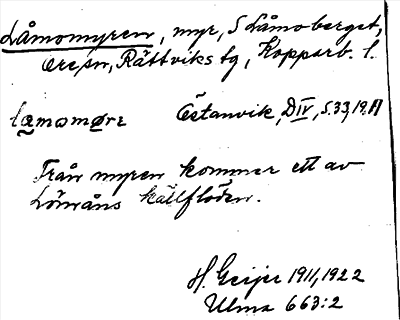 Låmomyren, myr, S Låmoberget,
Oresn, Rättviks tg, Kopparb. l.
Östanvik, DIV, S.33, 1911
Från myren kommer ett av
Lömåns källflöden.
H. Geijer 1911, 1922
Ulma 663:2